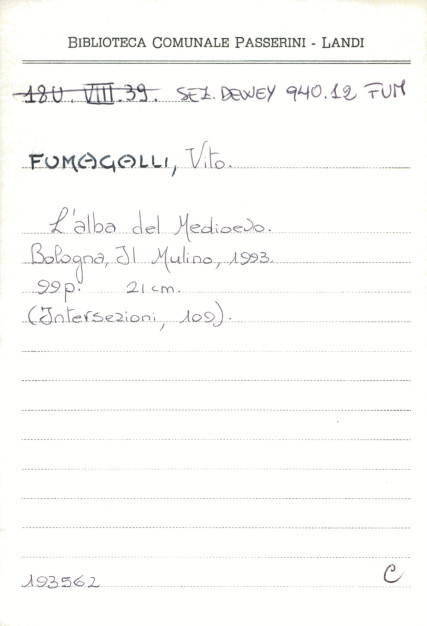 BIBLIOTECA COMUNALE PASSERINI - LANDI
18U. VIII.39. SEZ. DEWEY 940.12 FUM
FUMAGALLI, Vito.
L'alba del Medioevo.
Bologna, Il Mulino, 1993.
99 p. 21 cm.
(Intersezioni, 109).
193562
C